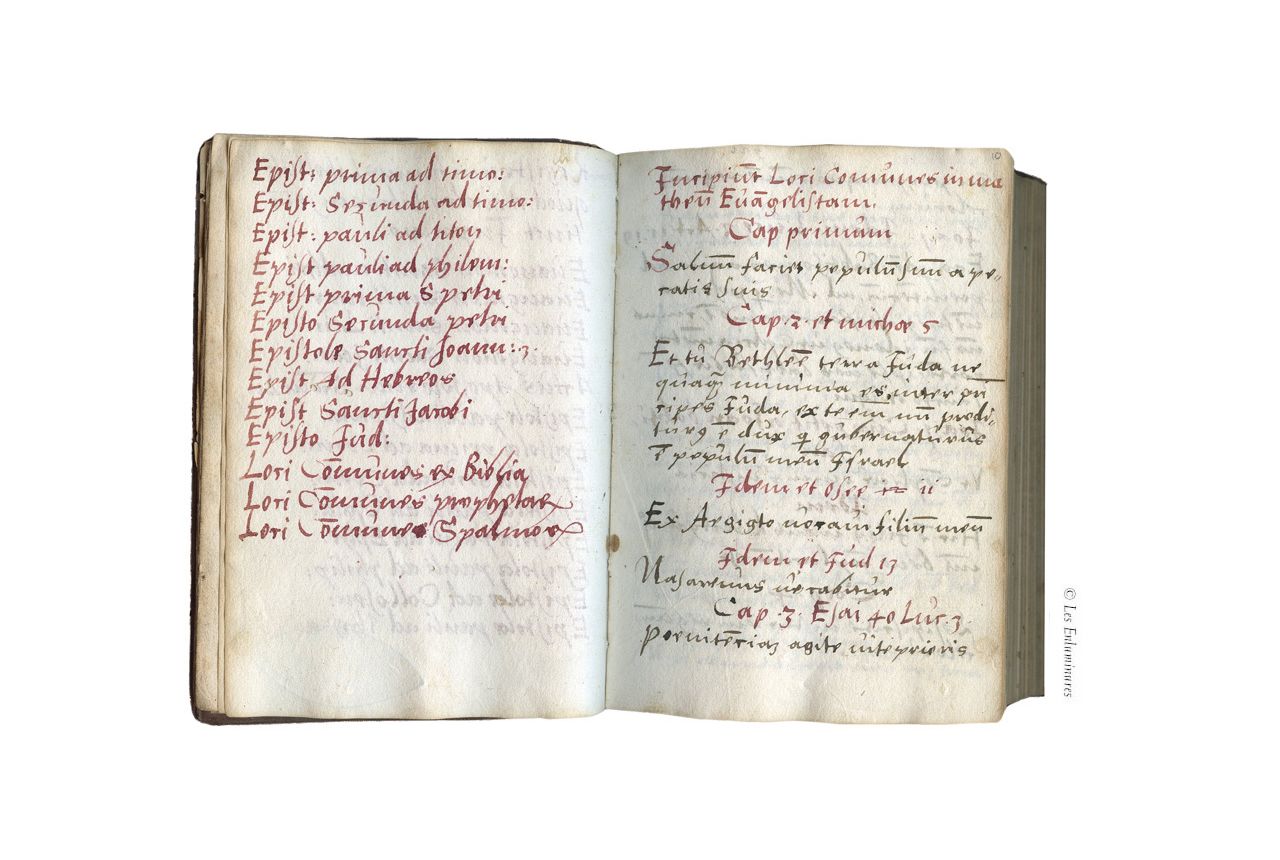 Epist: prima ad timo:
Epist: Secunda ad timo:
Epist: pauli ad titon
Epist pauli ad philem:
Epist prima S petri
Episto Secunda petri
Epistole Sancti Joann: 3.
Epist Ad Hebreos
Epist Sancti Jacobi
Episto Jud:
Loci Com̄unes ex Biblia
Loci Com̄unes prophetaꝝ
Loci Com̄unes Spalmoꝝ
Incipiūt Loci Comūnes in ma
theū Euāgelistam.
Cap primum
Saluū faciet populū suū a pe-
catis suis
Cap. 2. et michæ 5
Et tu Bethleē terra Juda ne
quaq̄ minima es inter pri
cipes Juda, ex te em̄ mī prodi-
turꝰ ē dux q̄ gubernaturus
ē populū meū Israel
Idem et Osee 11
Ex Aegipto uocaui filiū meū
Idem et Jud 13
Nasarenus uocabitur
Cap. 3. Esai 40 Luc. 3.
Poenitēciam agite
© Les Enluminures